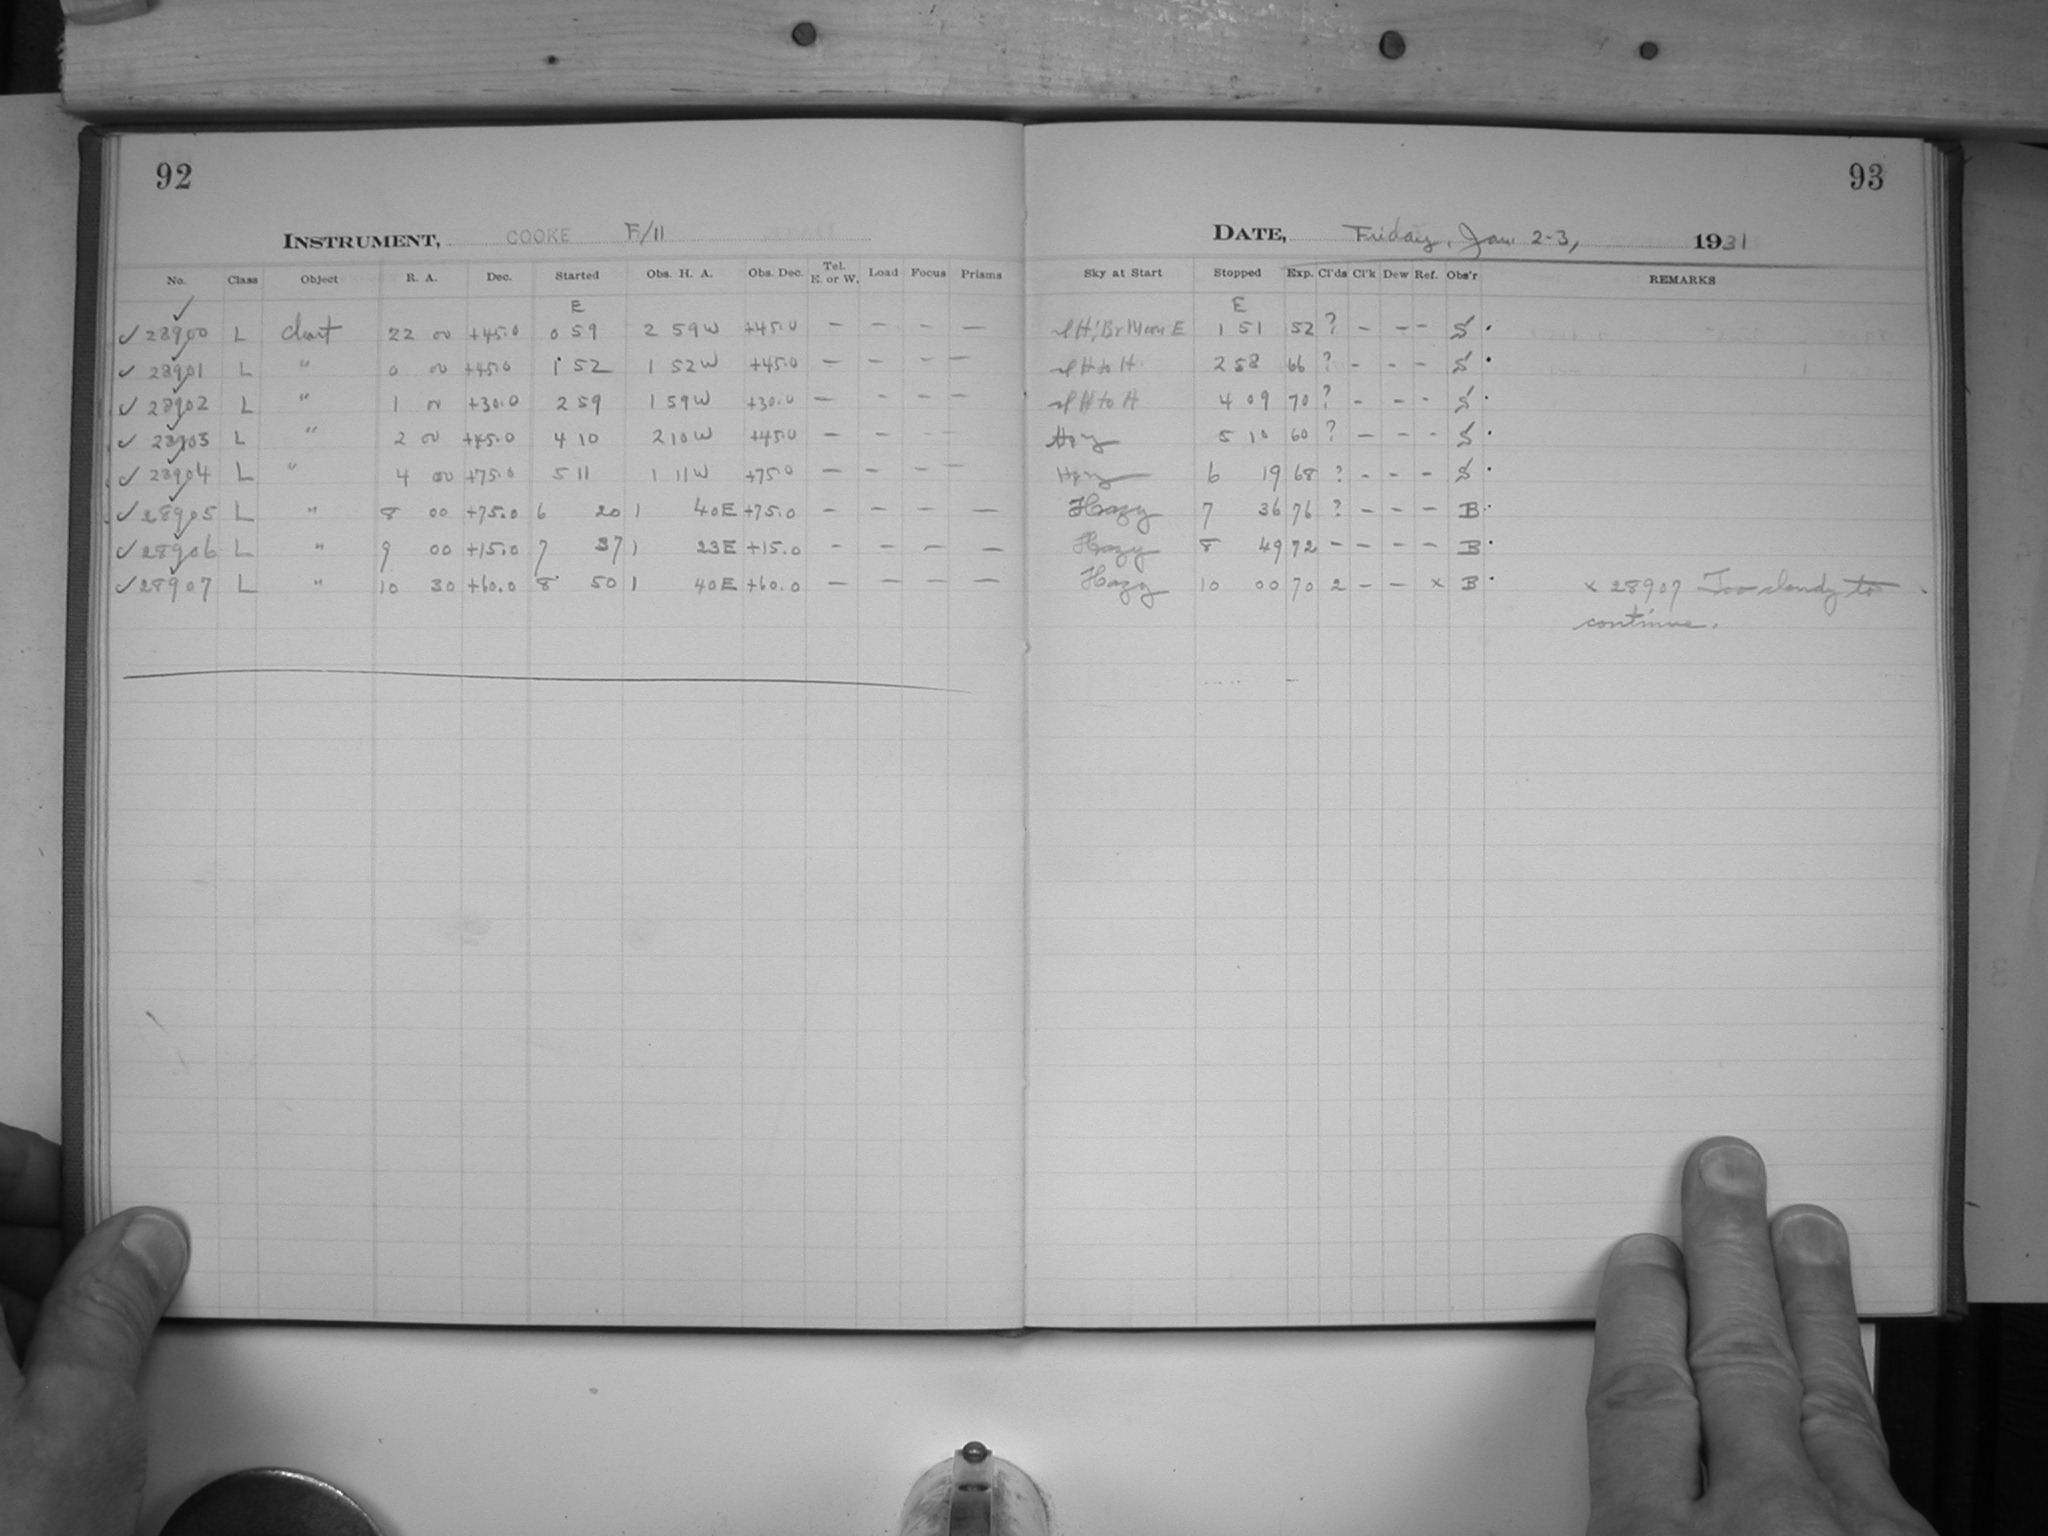 92
INSTRUMENT, COOKE F/11
No. Class Object R. A. Dec. Started Obs. H. A. Obs. Dec. Tel. E. or W. Load Focus Prisms
E
✓ 28900 L chart 22 00 +45.0 0 59 2 59 W +45.0 — — — —
✓ 28901 L " 0 00 +45.0 1 52 1 52 W +45.0 — — — —
✓ 28902 L " 1 00 +30.0 2 59 1 59 W +30.0 — — — —
✓ 28903 L " 2 00 +45.0 4 10 2 10 W +45.0 — — — —
✓ 28904 L " 4 00 +75.0 5 11 1 11 W +75.0 — — — —
✓ 28905 L " 8 00 +75.0 6 20 1 40 E +75.0 — — — —
✓ 28906 L " 9 00 +15.0 7 37 1 23 E +15.0 — — — —
✓ 28907 L " 10 30 +60.0 8 50 1 40 E +60.0 — — — —
93
DATE, Friday, Jan. 2-3, 1931
Sky at Start Stopped Exp. Cl'ds Cl'k Dew Ref. Obs'r REMARKS
E
sl H; Br Moon E 1 51 52 ? — — — S
sl H to H. 2 58 66 ? — — — S
sl H to H 4 09 70 ? — — — S
Hazy 5 10 60 ? — — — S
Hazy 6 19 68 ? — — — S
Hazy 7 36 76 ? — — — B
Hazy 8 49 72 — — — — B
Hazy 10 00 70 2 — — x B x 28907 Too cloudy to
continue.